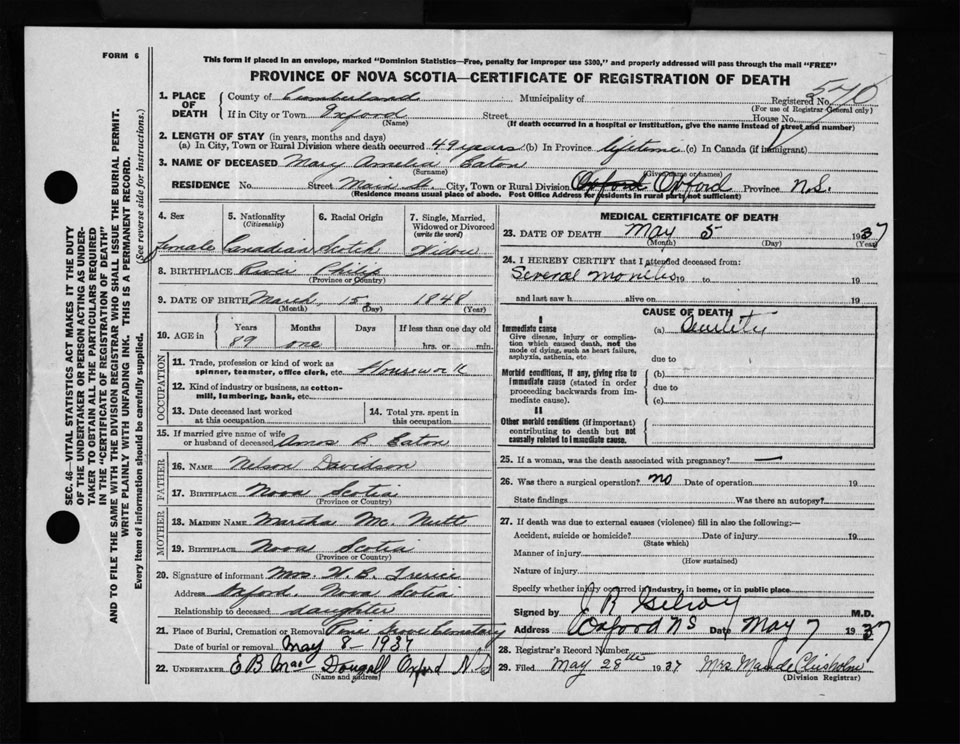 FORM 6
This form if placed in an envelope, marked "Dominion Statistics—Free, penalty for improper use $300," and properly addressed will pass through the mail "FREE"
PROVINCE OF NOVA SCOTIA—CERTIFICATE OF REGISTRATION OF DEATH
SEC. 46—VITAL STATISTICS ACT MAKES IT THE DUTY
OF THE UNDERTAKER OR PERSON ACTING AS UNDER-
TAKER TO OBTAIN ALL THE PARTICULARS REQUIRED
IN THE "CERTIFICATE OF REGISTRATION OF DEATH"
AND TO FILE THE SAME WITH THE DIVISION REGISTRAR WHO SHALL ISSUE THE BURIAL PERMIT.
WRITE PLAINLY WITH UNFADING INK. THIS IS A PERMANENT RECORD.
Every item of information should be carefully supplied. (See reverse side for instructions.)
1. PLACE OF DEATH
County of Cumberland Municipality of Registered No. 570
(For use of Registrar General only)
If in City or Town Oxford Street House No.
(Name) (If death occurred in a hospital or institution, give the name instead of street and number)
2. LENGTH OF STAY (in years, months and days)
(a) In City, Town or Rural Division where death occurred 49 years (b) In Province lifetime (c) In Canada (if immigrant)
3. NAME OF DECEASED Mary Amelia Eaton
(Surname) (Given or name)
RESIDENCE No. Street Main St. City, Town or Rural Division Oxford Oxford Province N.S.
(Residence means usual place of abode. Post Office Address for residents in rural parts not sufficient)
4. Sex
female
5. Nationality
(Citizenship)
Canadian
6. Racial Origin
Scotch
7. Single, Married, Widowed or Divorced
(write the word)
Widow
8. BIRTHPLACE River Philip
(Province or Country)
9. DATE OF BIRTH March 15 1848
(Month) (Day) (Year)
10. AGE in Years Months Days If less than one day old
89 one hrs. or min.
OCCUPATION
11. Trade, profession or kind of work as
spinner, teamster, office clerk, etc. Housework
12. Kind of industry or business, as cotton-
mill, lumbering, bank, etc.
13. Date deceased last worked
at this occupation
14. Total yrs. spent in
this occupation
15. If married give name of wife
or husband of deceased Amos B. Eaton
FATHER
16. NAME Nelson Davidson
17. BIRTHPLACE Nova Scotia
(Province or Country)
MOTHER
18. MAIDEN NAME Martha Mc. Nutt
19. BIRTHPLACE Nova Scotia
(Province or Country)
20. Signature of informant Mrs. W. B.
Address Oxford. Nova Scotia
Relationship to deceased daughter
21. Place of Burial, Cremation or Removal Pine Grove Cemetary
Date of burial or removal May 8 - 1937
22. UNDERTAKER E B Mac Dougall Oxford N.S
(Name and address)
MEDICAL CERTIFICATE OF DEATH
23. DATE OF DEATH May 5 1937
(Month) (Day) (Year)
24. I HEREBY CERTIFY that I attended deceased from:
Several months 19 to 19
and last saw h alive on 19
CAUSE OF DEATH
I
Immediate cause
Give disease, injury or complica-
tion which caused death, not the
mode of dying, such as heart failure,
asphyxia, asthenia, etc.
(a) Senility
due to
Morbid conditions, if any, giving rise to
immediate cause (stated in order
proceeding backwards from im-
mediate cause).
(b)
due to
(c)
II
Other morbid conditions (if important)
contributing to death but not
causally related to immediate cause.
25. If a woman, was the death associated with pregnancy? —
26. Was there a surgical operation? no Date of operation 19
State findings Was there an autopsy?
27. If death was due to external causes (violence) fill in also the following:—
Accident, suicide or homicide? Date of injury 19
(State which)
Manner of injury
(How sustained)
Nature of injury
Specify whether injury occurred in industry, in home, or in public place
Signed by J R Gilroy M.D.
Address Oxford N S Date May 7 1937
28. Registrar's Record Number
29. Filed May 28th 1937 Mrs Maude Chisholm
(Division Registrar)